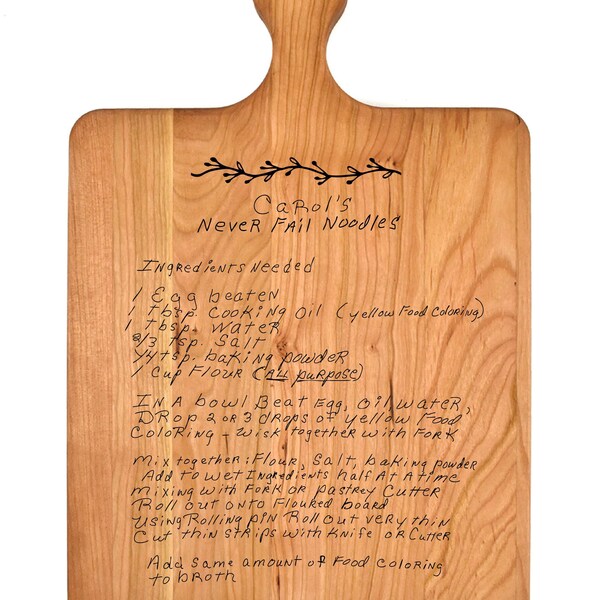 Carol's
Never Fail Noodles
Ingredients Needed
1 Egg beaten
1 tbsp. Cooking Oil (yellow Food Coloring)
1 tbsp. Water
2/3 tsp. Salt
1/4 tsp. baking powder
1 Cup Flour (All purpose)
In A bowl Beat Egg, Oil, Water,
Drop 2 or 3 drops of yellow Food
Coloring - Wisk together with Fork
Mix together: Flour, Salt, baking powder
Add to wet Ingredients half At A time
mixing with Fork or pastrey Cutter
Roll out onto Floured board
using Rolling pin Roll out very thin
Cut thin strips with Knife or Cutter
Add same amount of Food Coloring
to broth